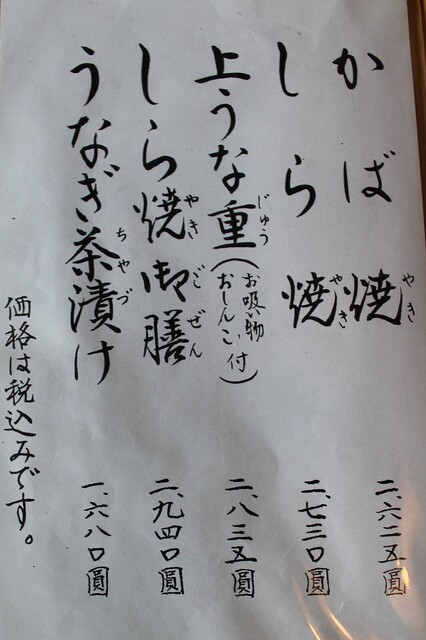 かば焼 二、六二五圓
やき
しら焼 二、七三〇圓
やき
上うな重(お吸い物おしんこ付) 二、八三五圓
じゅう
しら焼御膳 二、九四〇圓
やきごぜん
うなぎ茶漬け 一、六八〇圓
ちゃづ
価格は税込みです。